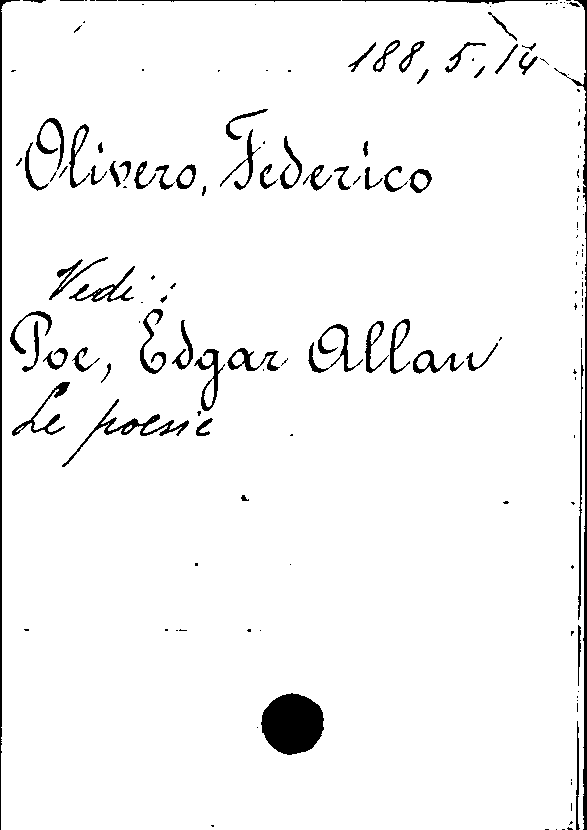 188, 5, 14
Olivero, Federico
Vedi:
Poe, Edgar Allan
Le poesie